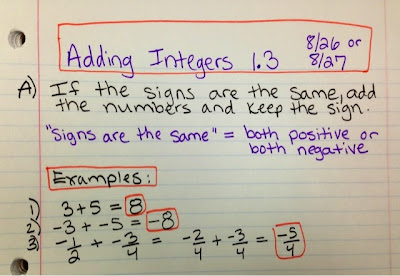 Adding Integers 1.3 8/26 or 8/27
A) If the signs are the same, add
the numbers and keep the sign.
"Signs are the same" = both positive or
both negative
Examples:
1) 3+5 = 8
2) -3 + -5 = -8
3) -1/2 + -3/4 = -2/4 + -3/4 = -5/4